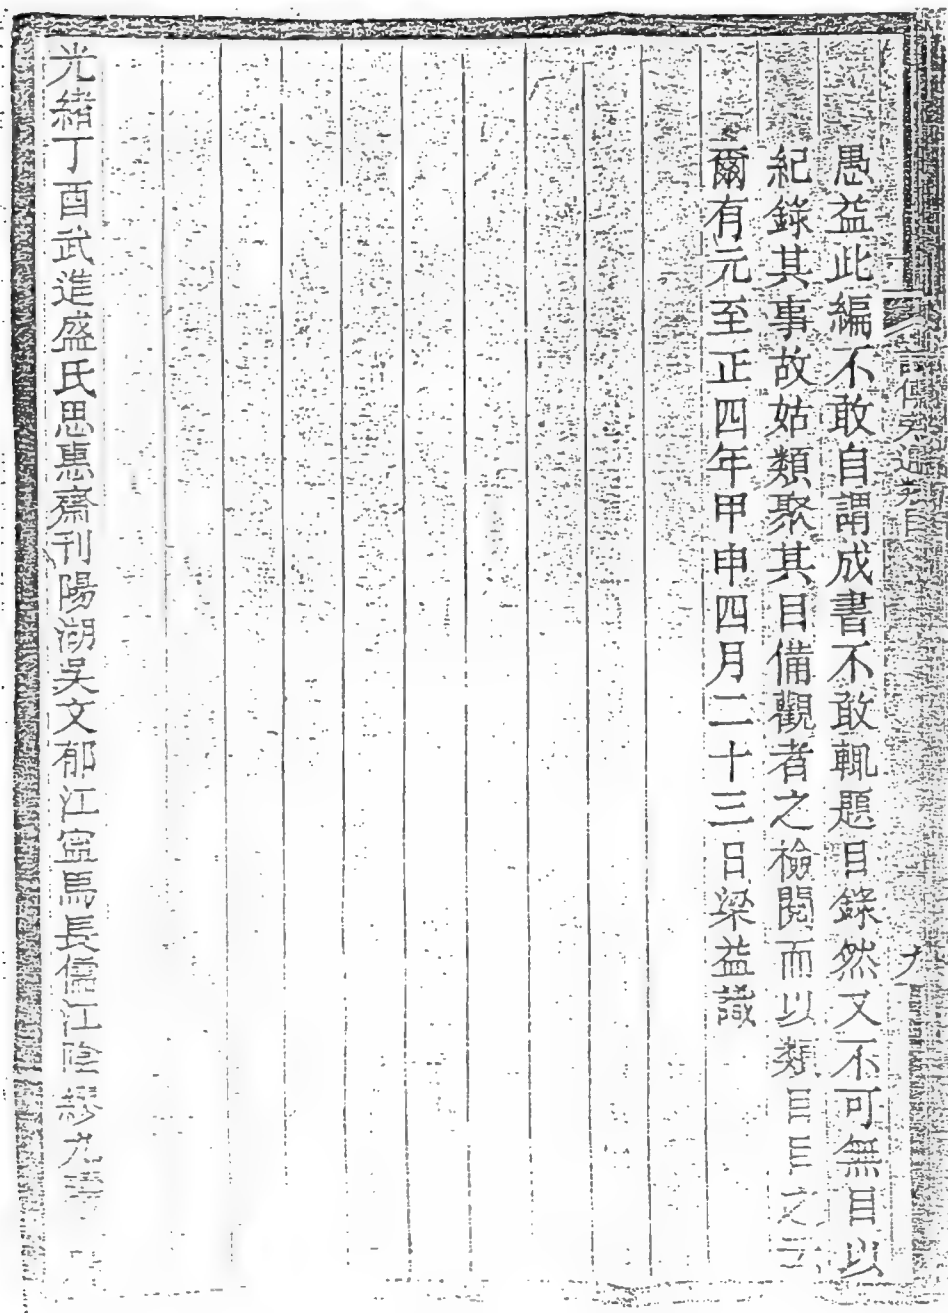 詩傳旁通 目
愚益此編不敢自謂成書不敢輒題目錄然又不可無目以
紀錄其事故姑類聚其目備觀者之檢閱而以類目目之云
爾有元至正四年甲申四月二十三日梁益識
光緒丁酉武進盛氏思惠齋刊陽湖吳文郁江寍馬長儒江陰繆九